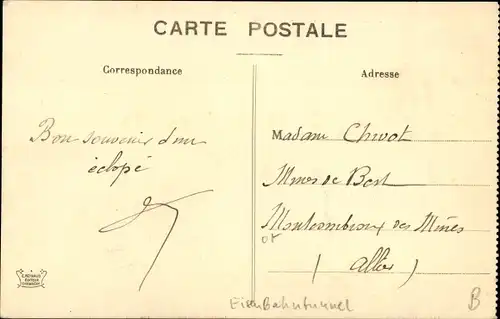 CARTE POSTALE
Correspondance
Adresse
Bon souvenir d'un
éclopé
Madame Chivot
Mines de Bert
Montcombroux des Mines
(Allier)
Eisenbahntunnel
B